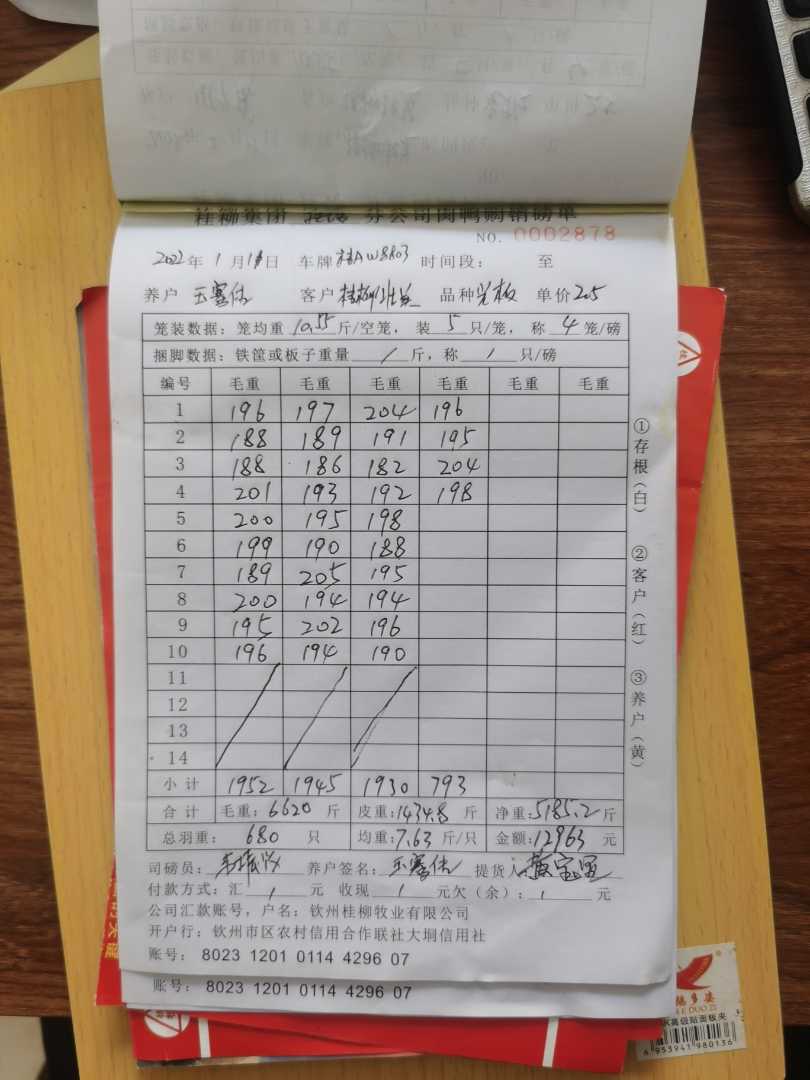 NO. 0002878
2022年 1 月 日 车牌 AW8803 时间段： 至
养户 客户 品种 单价 2.5
笼装数据：笼均重 10.55 斤/空笼，装 5 只/笼，称 4 笼/磅
捆脚数据：铁筐或板子重量 / 斤，称 / 只/磅
编号 毛重 毛重 毛重 毛重 毛重 毛重
1 196 197 204 196
2 188 189 191 195
3 188 186 182 204
4 201 193 192 198
5 200 195 198
6 199 190 188
7 189 205 195
8 200 194 194
9 195 202 196
10 196 194 190
11
12
13
14
小计 1952 1945 1930 793
合计 毛重：6620 斤 皮重：1434.8 斤 净重：5185.2 斤
总羽重： 680 只 均重：7.63 斤/只 金额：12963 元
司磅员： 养户签名： 提货人
付款方式：汇 / 元 收现 / 元欠（余）： / 元
公司汇款账号，户名：钦州桂柳牧业有限公司
开户行：钦州市区农村信用合作联社大垌信用社
账号： 8023 1201 0114 4296 07
账号： 8023 1201 0114 4296 07
①存根（白）
②客户（红）
③养户（黄）
6 953941 980136